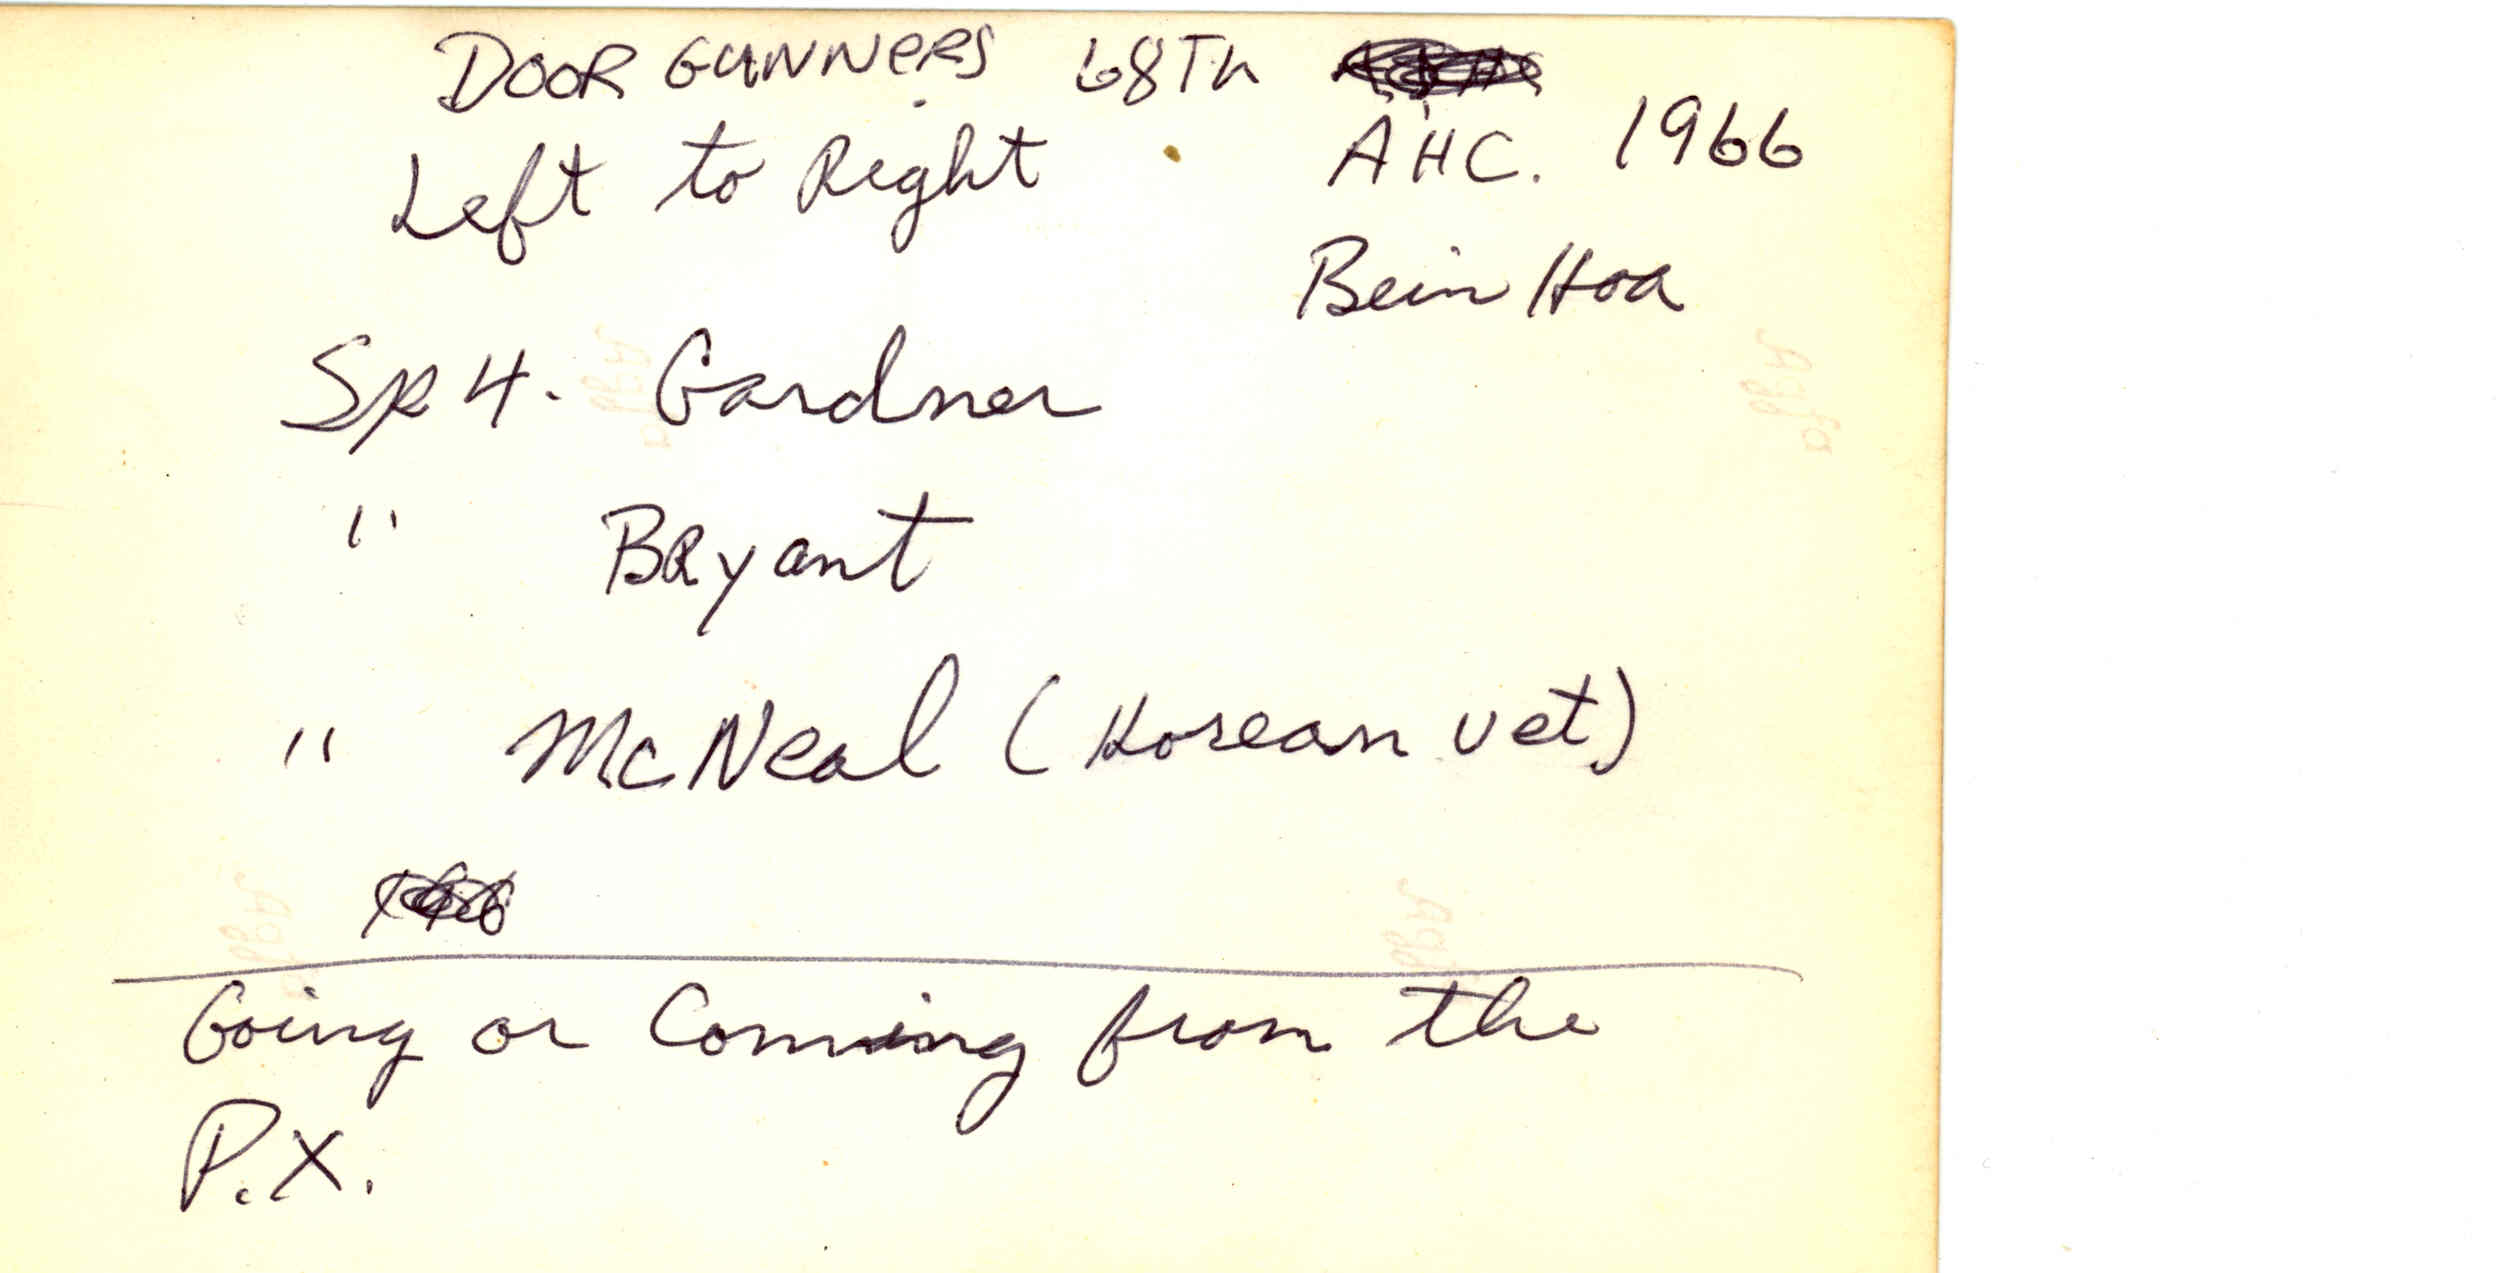 DOOR GUNNERS 68Th
AHC. 1966
Left to Right
Bein Hoa
Sp 4. Gardner
" Bryant
" McNeal (Korean vet)
Going or Comming from the
P.X.
Agfa
Agfa
Agfa
Agfa